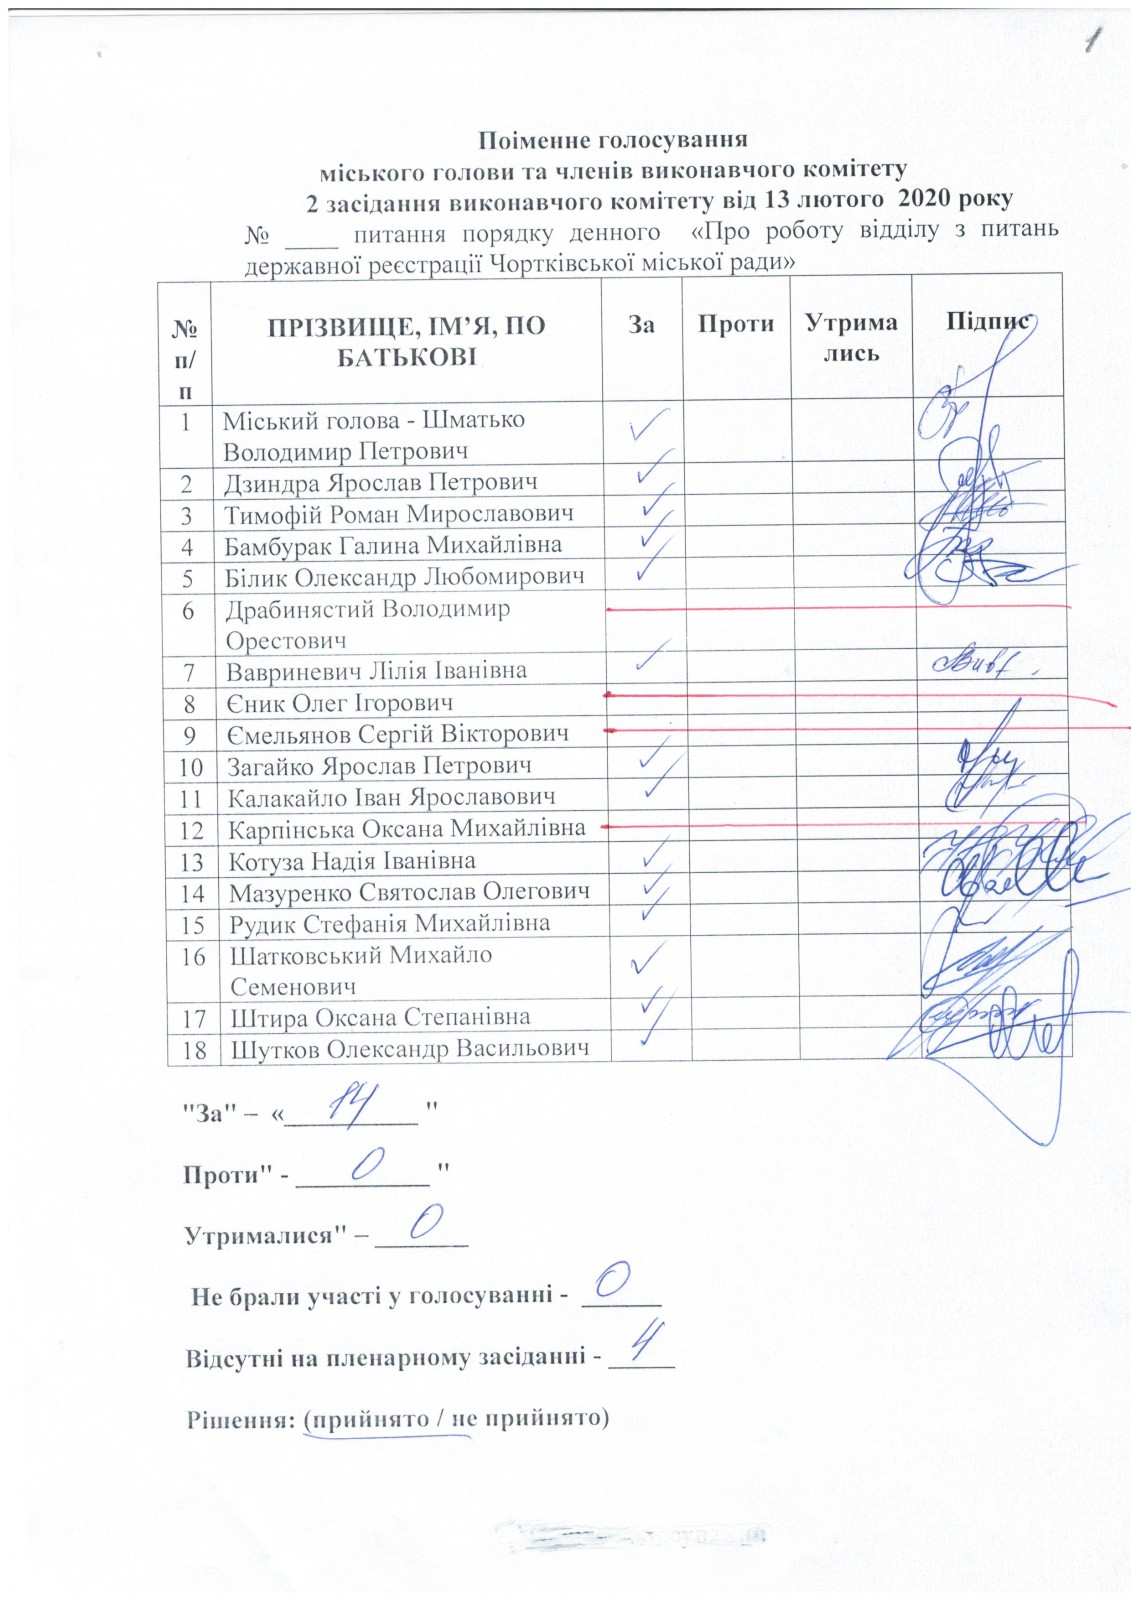 1
Поіменне голосування
міського голови та членів виконавчого комітету
2 засідання виконавчого комітету від 13 лютого 2020 року
№ ____ питання порядку денного «Про роботу відділу з питань
державної реєстрації Чортківської міської ради»
№ п/п ПРІЗВИЩЕ, ІМ’Я, ПО БАТЬКОВІ За Проти Утрима лись Підпис
1 Міський голова - Шматько
Володимир Петрович
2 Дзиндра Ярослав Петрович
3 Тимофій Роман Мирославович
4 Бамбурак Галина Михайлівна
5 Білик Олександр Любомирович
6 Драбинястий Володимир
Орестович
7 Вавриневич Лілія Іванівна
8 Єник Олег Ігорович
9 Ємельянов Сергій Вікторович
10 Загайко Ярослав Петрович
11 Калакайло Іван Ярославович
12 Карпінська Оксана Михайлівна
13 Котуза Надія Іванівна
14 Мазуренко Святослав Олегович
15 Рудик Стефанія Михайлівна
16 Шатковський Михайло
Семенович
17 Штира Оксана Степанівна
18 Шутков Олександр Васильович
"За" – «14"
Проти" - 0"
Утрималися" – 0
Не брали участі у голосуванні - 0
Відсутні на пленарному засіданні - 4
Рішення: (прийнято / не прийнято)